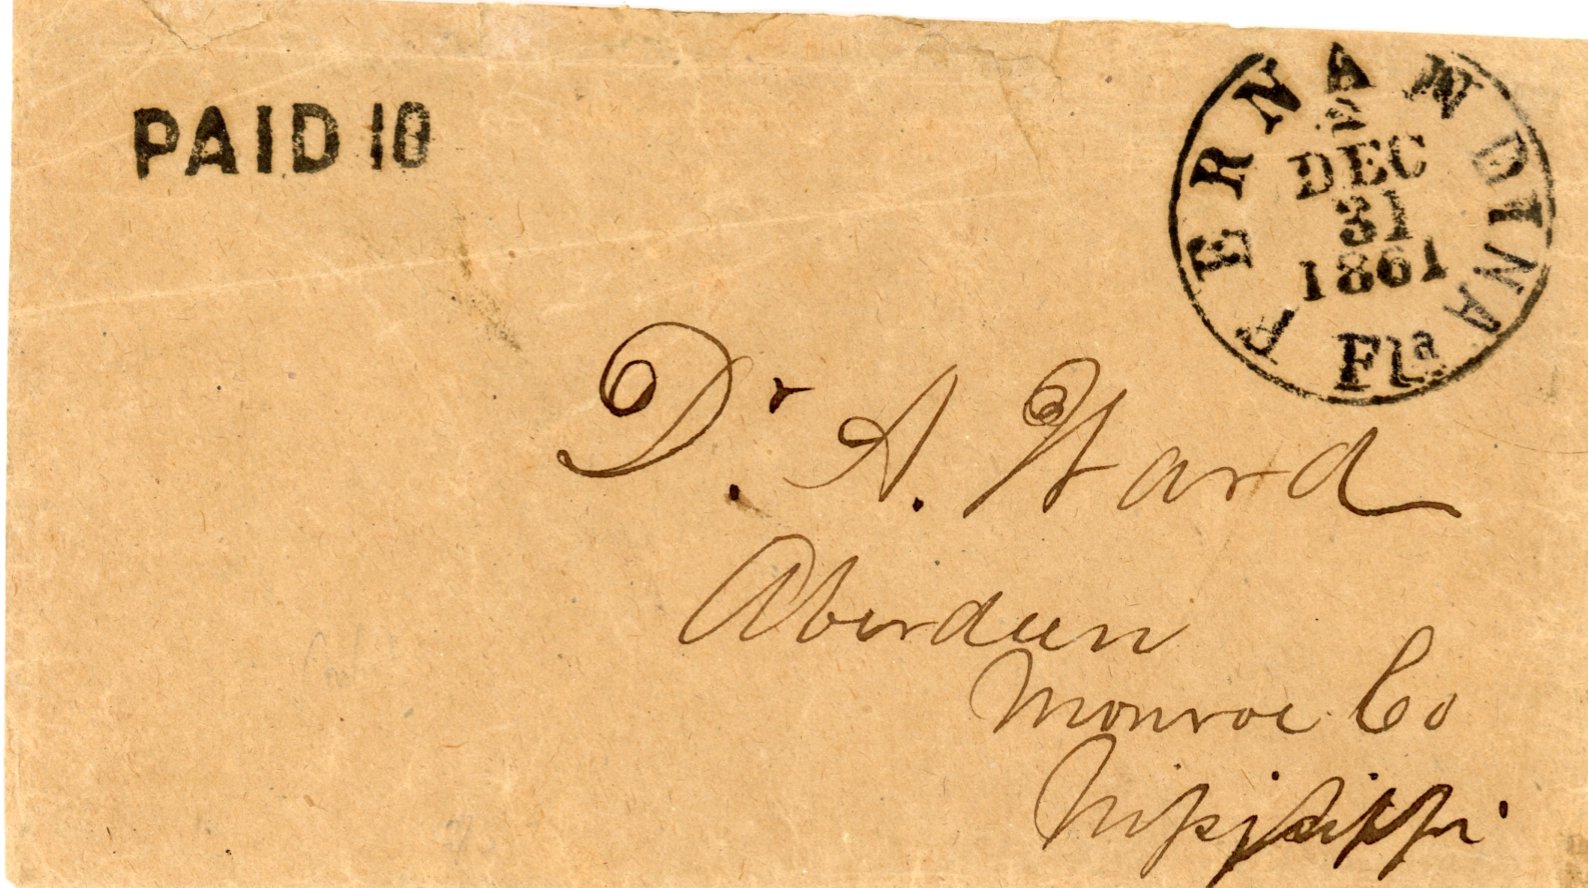 PAID 10
FERNANDINA
2
DEC
31
1861
Fla
Dr. A. Ward
Aberdeen
Monroe Co
Mississippi